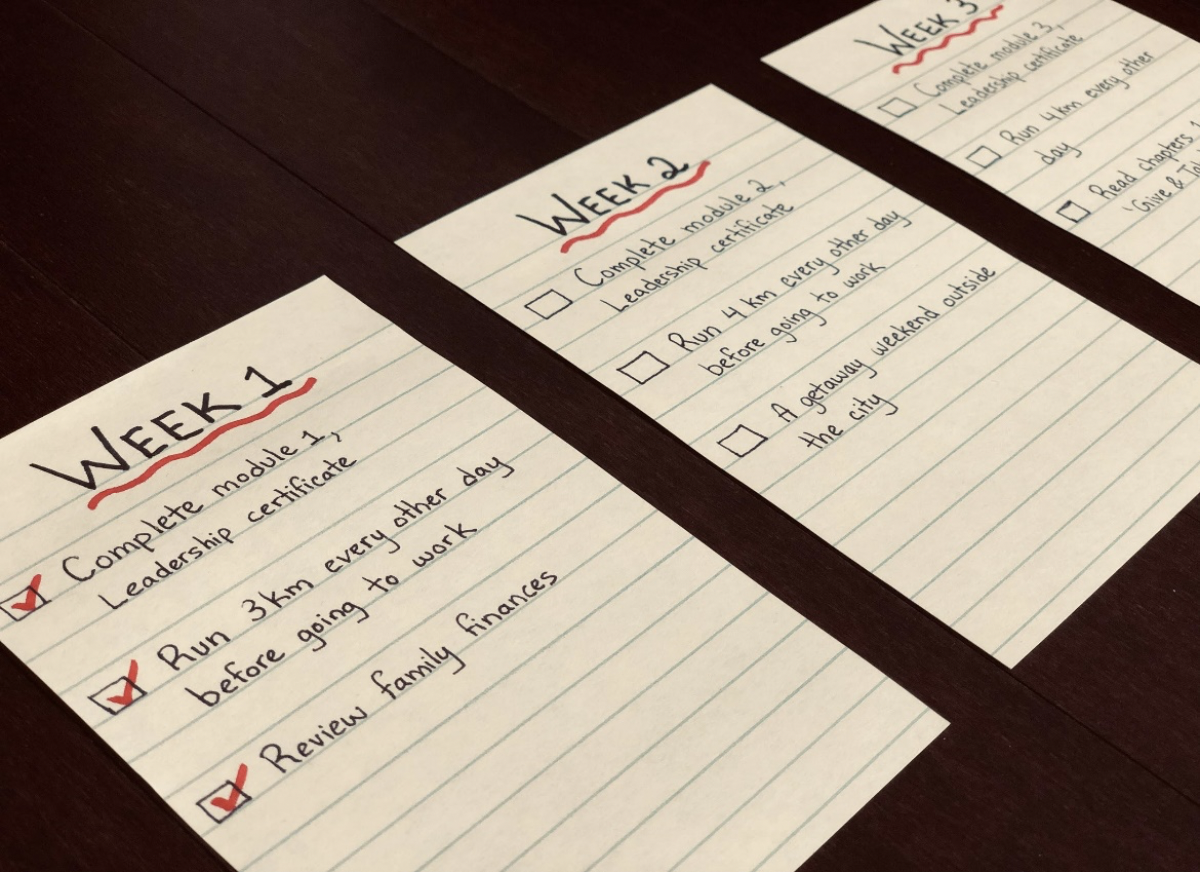 WEEK 1
Complete module 1,
Leadership certificate
Run 3km every other day
before going to work
Review family finances
WEEK 2
Complete module 2,
Leadership certificate
Run 4km every other day
before going to work
A getaway weekend outside
the city
WEEK 3
Complete module 3,
Leadership certificate
Run 4km every other
day
Read chapters 1
'Give &